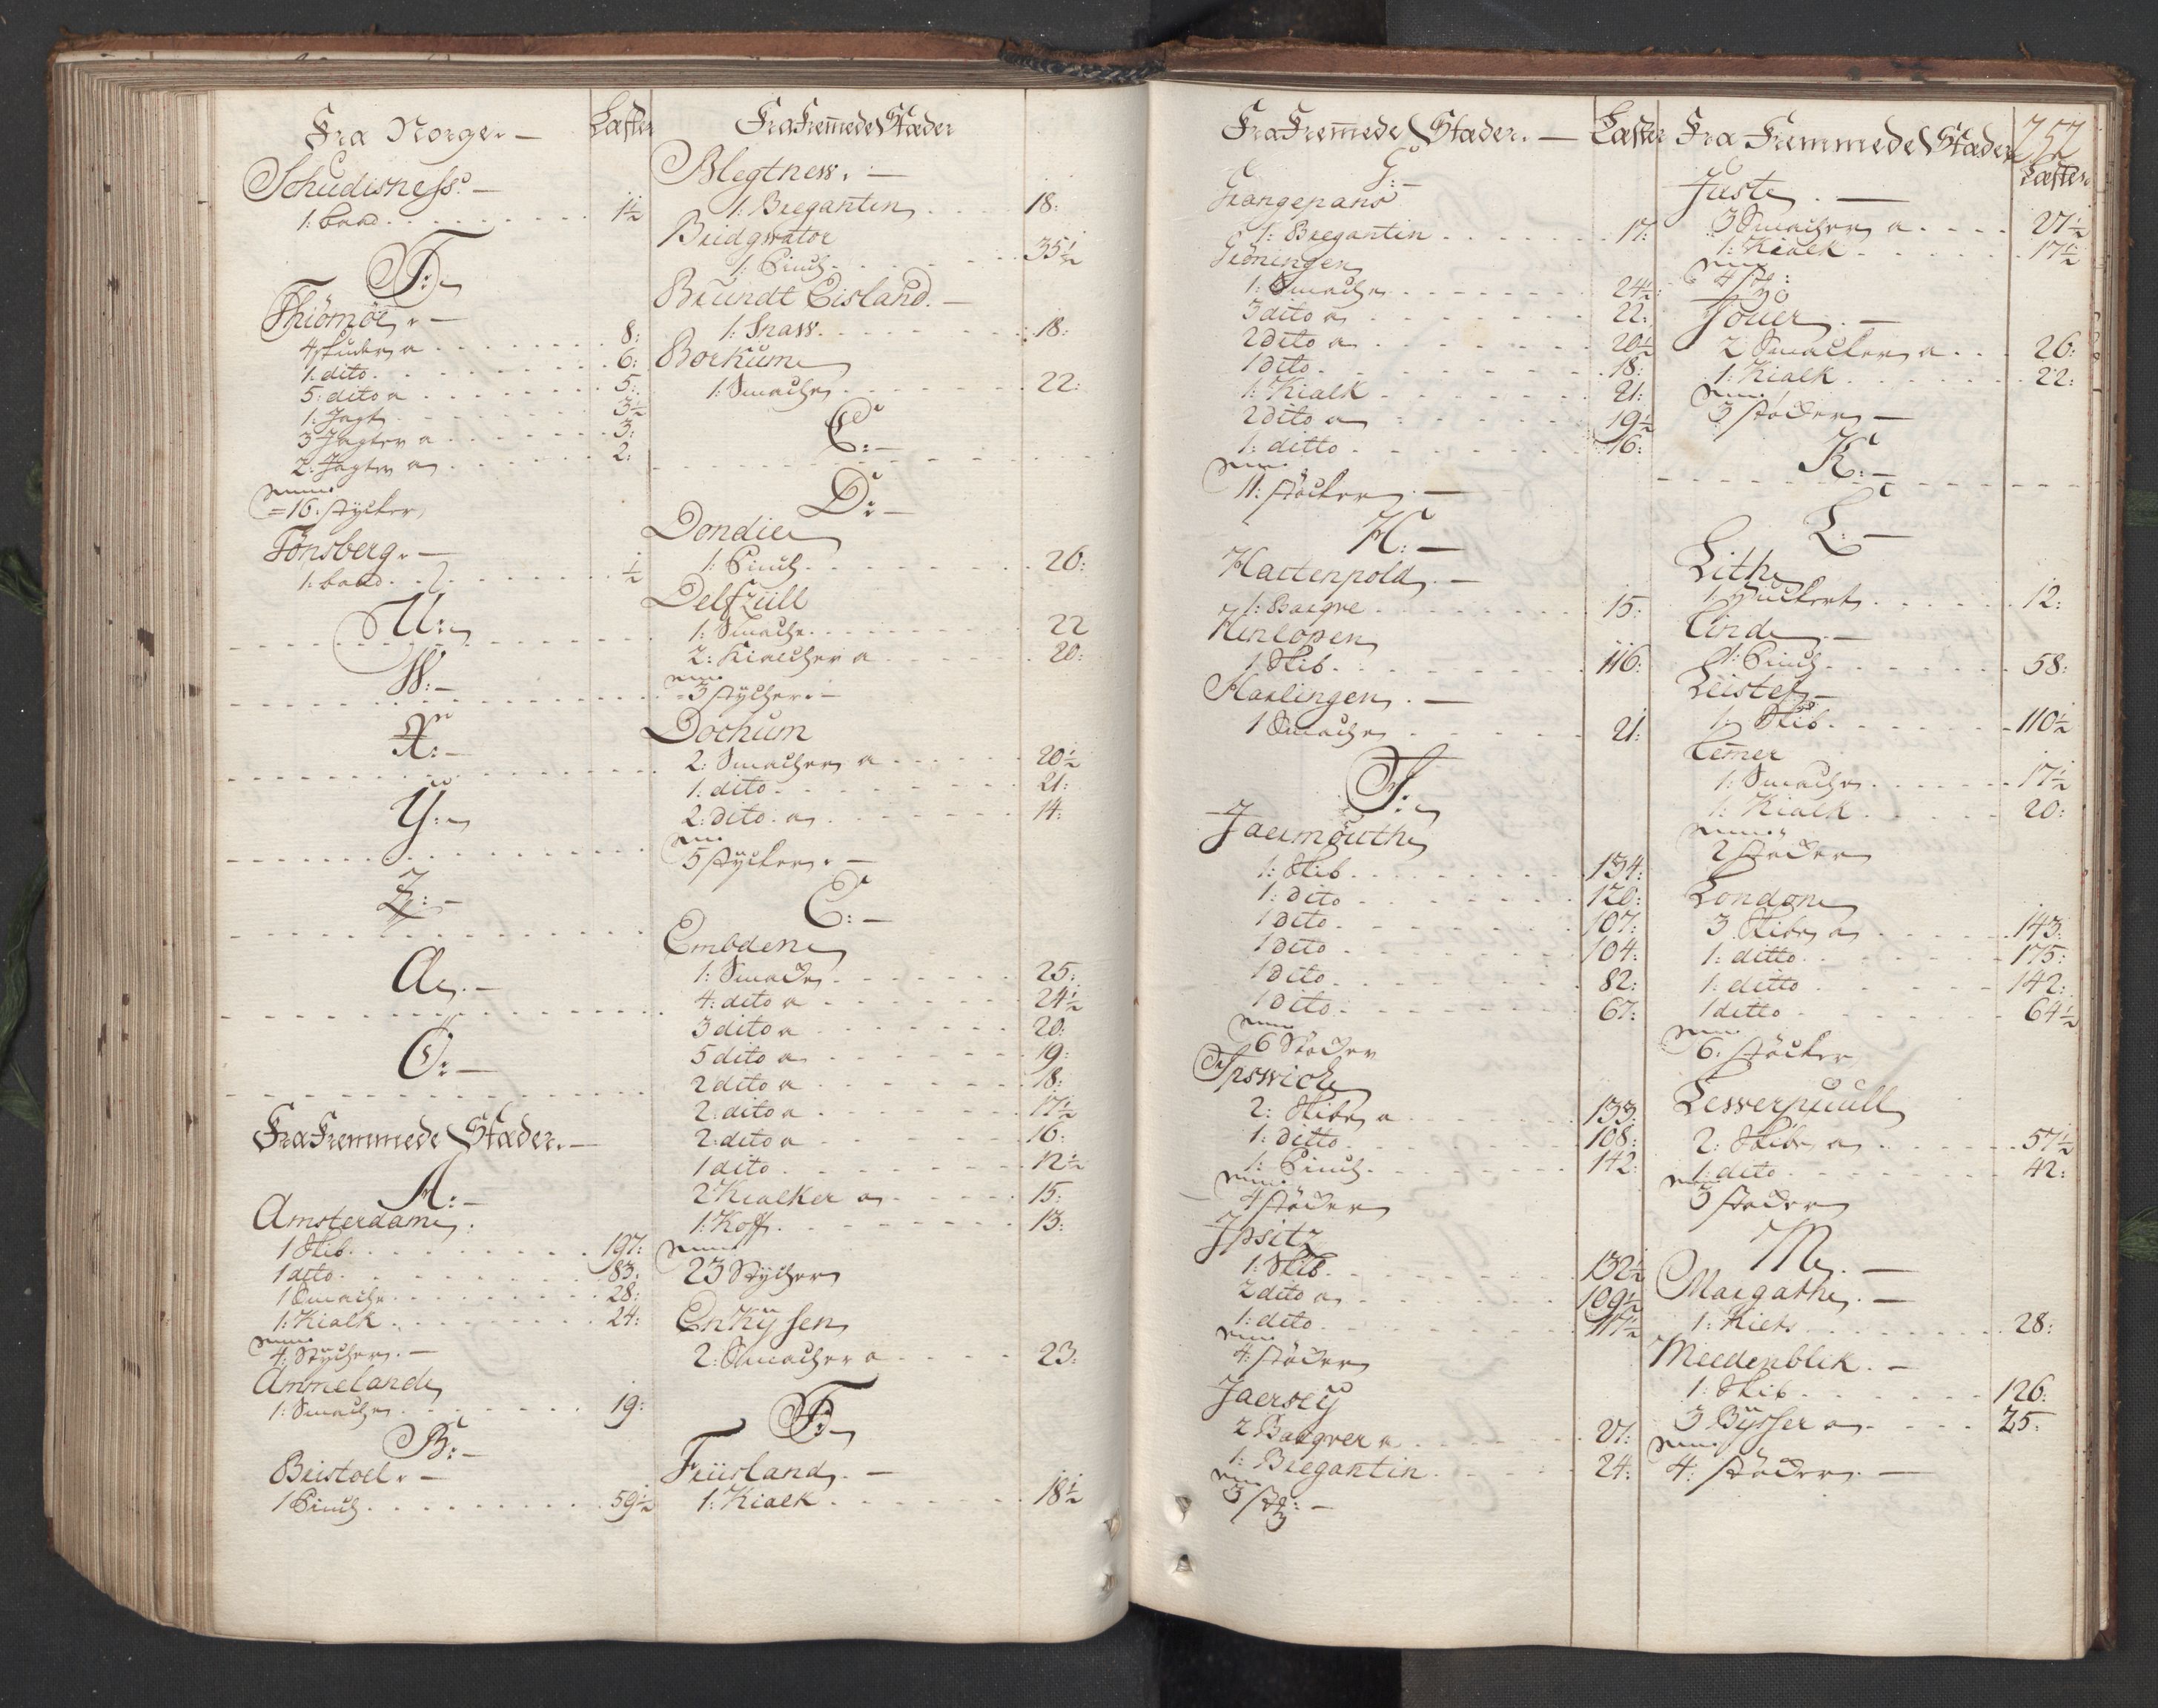 Fra Norge. — Læster
Schudisness. —
1: baad. 1½
T:
Thiömöe. —
4 skuder a 8:
1. dito. 6:
5: dito a 5:
1: Jagt 3½
3 Jagter a 3:
2: Jagter a 2:
=16. stÿcker
Tönsberg. —
1: baad. ½
U:
W: —
X: —
Ÿ:
Z: —
A. —
O: —
Fra Fremmede Stæder. —
A: —
Amsterdam.
1 Skib. 197:
1 dito. 83:
1 Smacke. 28:
1: Kialk. 24:
4: Stÿcker. —
Ammeland
1: Smacke 19:
B: —
Bristoel. —
1 Pinck. 59½
Fra Fremmede Stæder
Blegtness. —
1: Bregantin 18:
Bridgwator
1: Pinck. 35½
Brundt Eisland. —
1: Snaw. 18:
Borkum
1: Smacke 22:
C: —
D: —
Dondie
1: Pinck. 26:
Delfzüll
1: Smacke. 22
2: Kialcker a 20:
=3 stÿcker. —
Dochum
2: Smacker a 20½
1. dito. 21:
2: dito. a 14:
5 stÿcker. —
E: —
Embden
1: Smacke 25:
4: dito a 24½
3 dito a 20:
5 dito a 19:
2 dito a 18:
2: dito a 17½
2: dito a 16:
1 dito. 12½
2 Kialker a 15:
1: Koff. 13:
23 Stÿcker
Enkÿsen
2: Smacker a 23:
F:
Friisland. —
1: Kialk. 18½
Fra Fremmede Stæder. — Læster
G: —
Grangepans
1: Bregantin 17:
Gröningen
1: Smacke 24½:
3 dito a 22:
2 dito a 20½
1 dito 18:
1: Kialk 21:
2 dito a 19½
1: ditto. 16:
11: stöcker. —
H: —
Hartenpold. —
1: Barque 15:
Hinlopen
1 Skib. 116:
Harlingen. —
1 Smacke 21:
J:
Jaermouth
1: Skib. 134:
1: dito 120:
1 dito. 107:
1 dito 104:
1 dito. 82:
1 dito. 67:
6 Stöcker
Ipswich
2: Skibe a 133:
1: ditto. 108:
1: Pinck. 142:
4 stöcker
Jpsitz
1: Skib. 132½
2 dito a 109½
1: dito. 117½
4: stöcker
Jaersey
2 Barqver a 27:
1: Bregantin. 24:
3 st: —
Fra Fremmede Stæder
252
Læster.
Juste. —
3 Smacker a 27½
1: Kialk 17½
4 st:
Jouer. —
2 Smacker a 26:
1: Kialk 22:
3 stöcker —
K: —
L: —
Lith
1: Huckert 12:
Lind. —
1: Pinck 58:
Leistef —
1: Skib. 110½
Lemer
1: Smacke 17½
1: Kialk 20:
2 stöcker
London
3 Skibe a 143:
1: ditto. 175:
1: ditto 142:
1 ditto 64½
6: stöcker
Lewerpuull
2: Skibe a 57½
1: dito 42:
3 stöcker
M. —
Margathe. —
1: Kiets 28:
Meedenblik. —
1: Skib. 126:
3 Bÿsser a 25:
4: stöcker. —